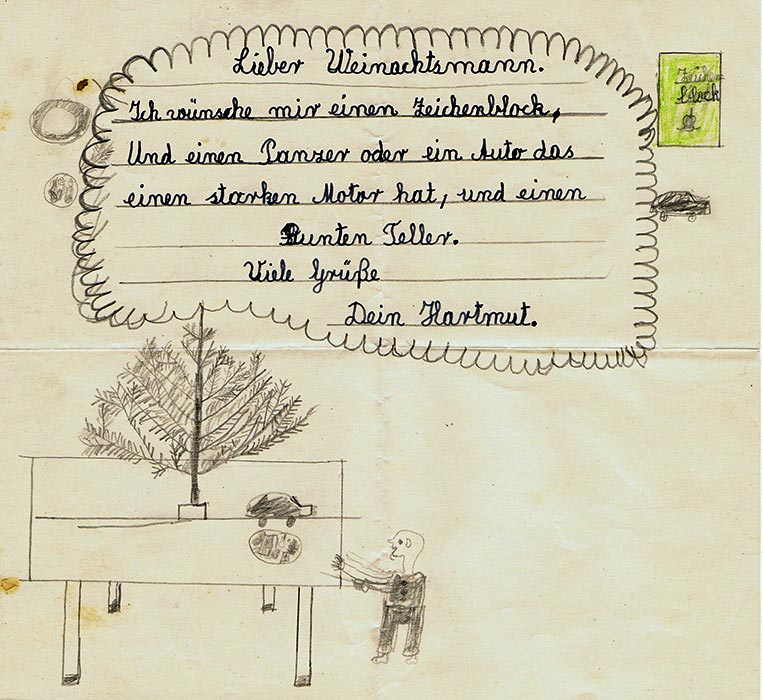 Lieber Weinachtsmann.
Ich wünsche mir einen Zeichenblock,
Und einen Panzer oder ein Auto das
einen starken Motor hat, und einen
Bunten Teller.
Viele Grüße
Dein Hartmut.
Zeich
block